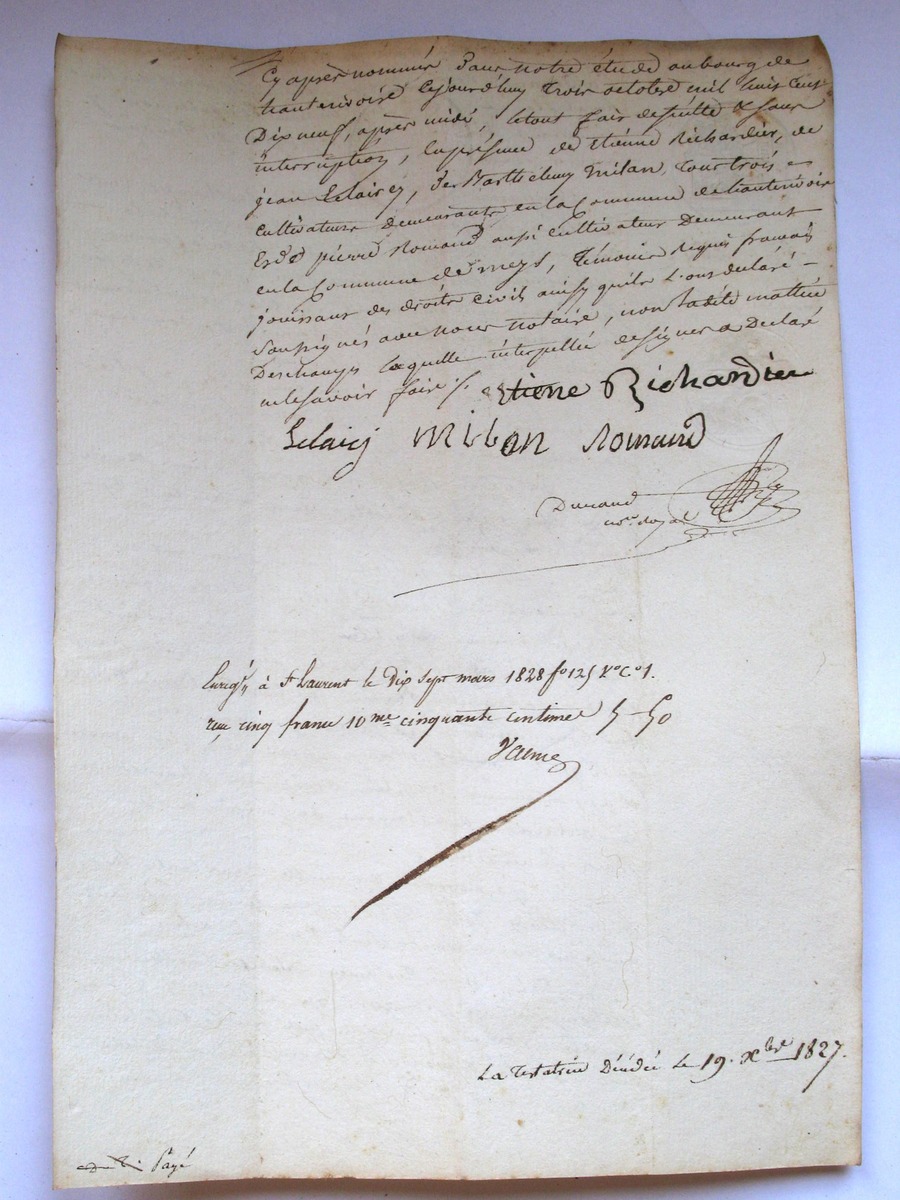 Cy après nommés dans notre étude au bourg de
hauterivoire cejourd'huy trois octobre mil huit cent
Dix neuf, après midi, letout fait desuitte & sans
interruption, enprésence de Etienne Richardier, de
jean Leclairej, de Barthelemy Milan, tous trois
cultivateurs demeurants en la Commune de hauterivoire
Et de pierre Romand aussi Cultivateur Demeurant
en la Commune de meys, témoins Requis français
jouissant des droits civil ainsy quils l'ont declaré –
Soussignés avec nous notaire, non ladite mattrie
Deschamps laquelle interpellée de signer a Declaré
nelesavoir faire ./.
Etiene Richardier
Milan Romand
Durand
nore royal
Enregé à St Laurent le dix sept mars 1828 fo 125 Vo Co 1.
reçu cinq francs 10me cinquante centimes 5-50
La testatrice Décédée Le 19. Xbre 1827.
Payé